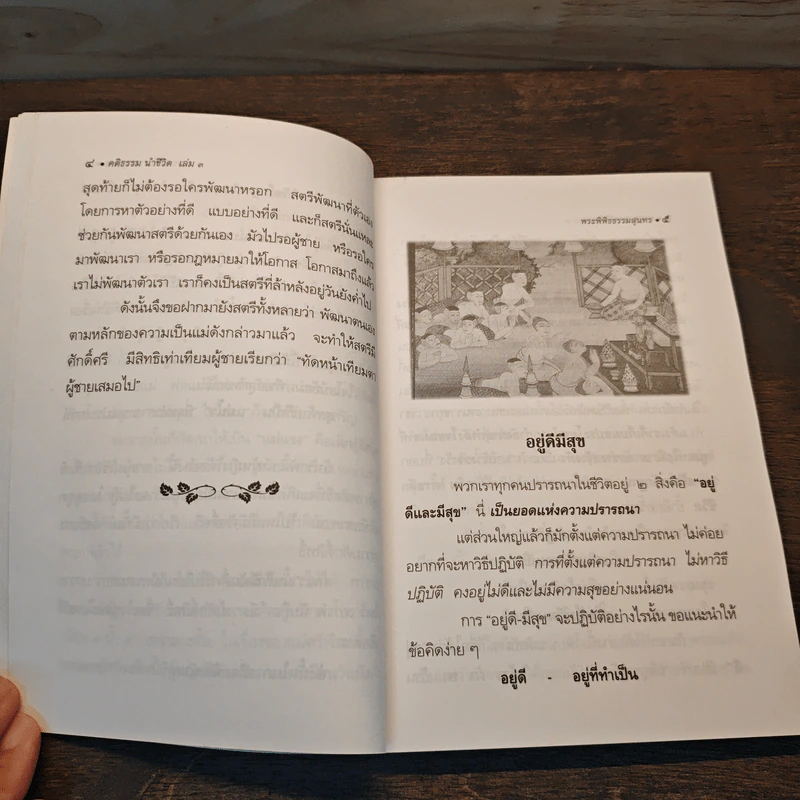 ๔ • คติธรรม นำชีวิต เล่ม ๓
สุดท้ายก็ไม่ต้องรอใครพัฒนาหรอก สตรีพัฒนาที่ตัวเอง
โดยการหาตัวอย่างที่ดี แบบอย่างที่ดี และก็สตรีนั่นแหละ
ช่วยกันพัฒนาสตรีด้วยกันเอง มัวไปรอผู้ชาย หรือรอใคร
มาพัฒนาเรา หรือรอกฎหมายมาให้โอกาส โอกาสมาถึงแล้ว
เราไม่พัฒนาตัวเรา เราก็คงเป็นสตรีที่ล้าหลังอยู่วันยังค่ำไป
ดังนั้นจึงขอฝากมายังสตรีทั้งหลายว่า พัฒนาตนเอง
ตามหลักของความเป็นแม่ดังกล่าวมาแล้ว จะทำให้สตรีมี
ศักดิ์ศรี มีสิทธิเท่าเทียมผู้ชายเรียกว่า “ทัดหน้าเทียมตา
ผู้ชายเสมอไป”
พระพิพิธธรรมสุนทร • ๕
อยู่ดีมีสุข
พวกเราทุกคนปรารถนาในชีวิตอยู่ ๒ สิ่งคือ “อยู่
ดีและมีสุข” นี่ เป็นยอดแห่งความปรารถนา
แต่ส่วนใหญ่แล้วก็มักตั้งแต่ความปรารถนา ไม่ค่อย
อยากที่จะหาวิธีปฏิบัติ การที่ตั้งแต่ความปรารถนา ไม่หาวิธี
ปฏิบัติ คงอยู่ไม่ดีและไม่มีความสุขอย่างแน่นอน
การ “อยู่ดี-มีสุข” จะปฏิบัติอย่างไรนั้น ขอแนะนำให้
ข้อคิดง่าย ๆ
อยู่ดี - อยู่ที่ทำเป็น